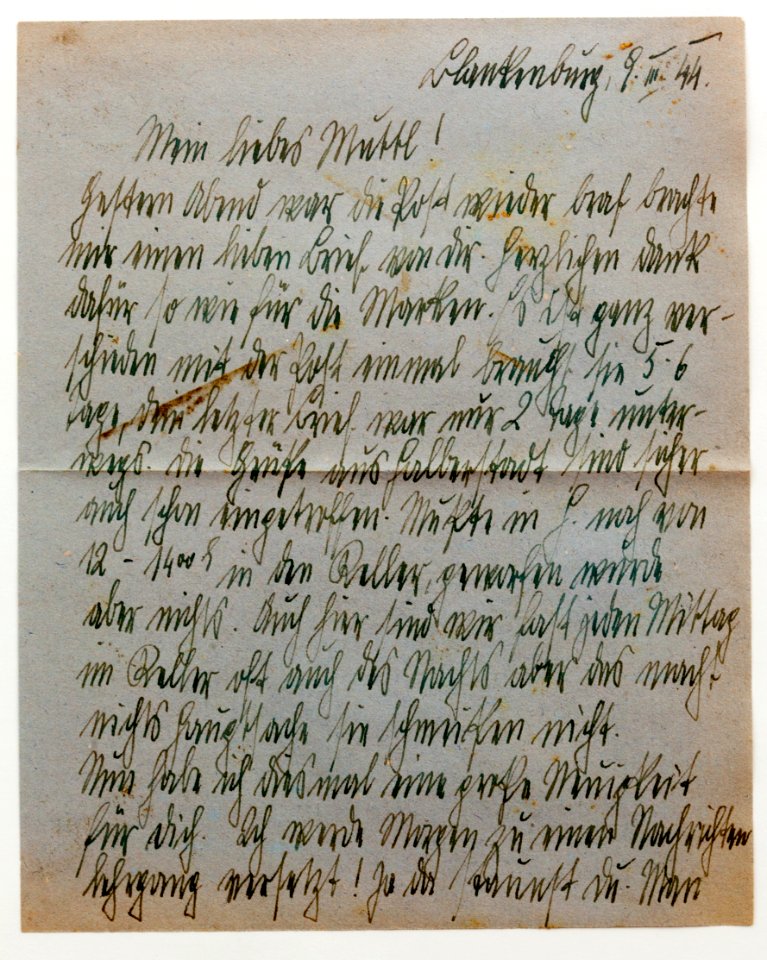 Blankenburg, 9. III. 44.
Mein liebes Muttl!
Gestern Abend war die Post wieder braf brachte
mir einen lieben Brief von dir. Herzlichen Dank
dafür so wie für die Marken. Es ist ganz ver-
schieden mit der Post einmal braucht sie 5-6
Tage, dein letzter Brief war nur 2 Tage unter-
wegs. Die Grüße aus Halberstadt sind sicher
auch schon eingetroffen. Mußte in H. noch von
12 - 14⁰⁰ in den Keller, geworfen wurde
aber nichts. Auch hier sind wir fast jeden Mittag
im Keller oft auch des Nachts aber das macht
nichts Hauptsache sie schmeißen nicht.
Nun habe ich diesmal eine große Neuigkeit
für dich. Ich werde Morgen zu einen Nachrichten
lehrgang versetzt! Ja da staunst du. Man